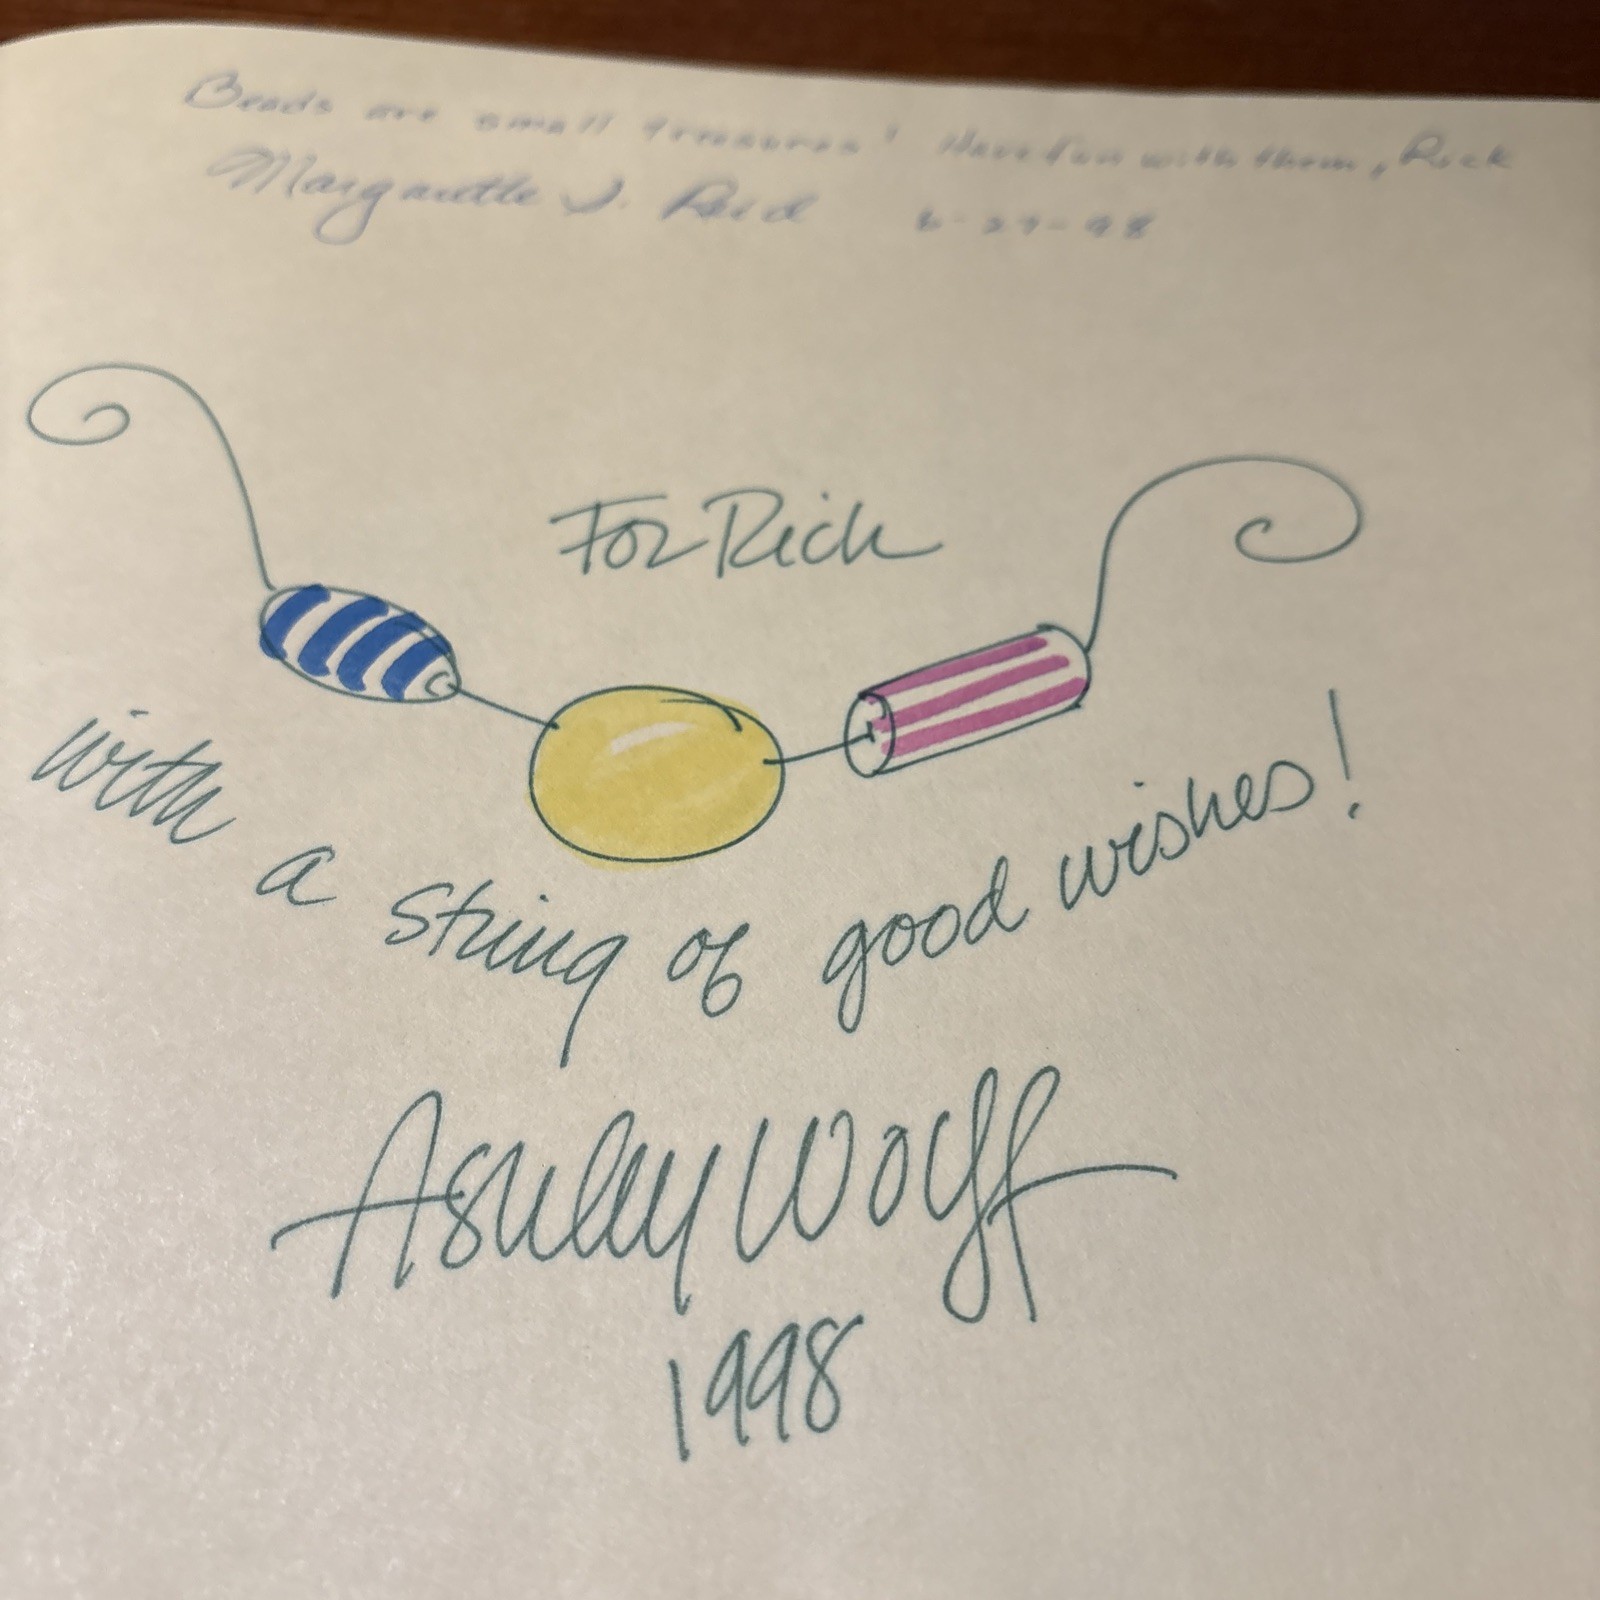 Beads are small treasures! Have fun with them, Rick
Margarette S. Reid 6-27-98
For Rick
with a string of good wishes!
Ashley Wolff
1998